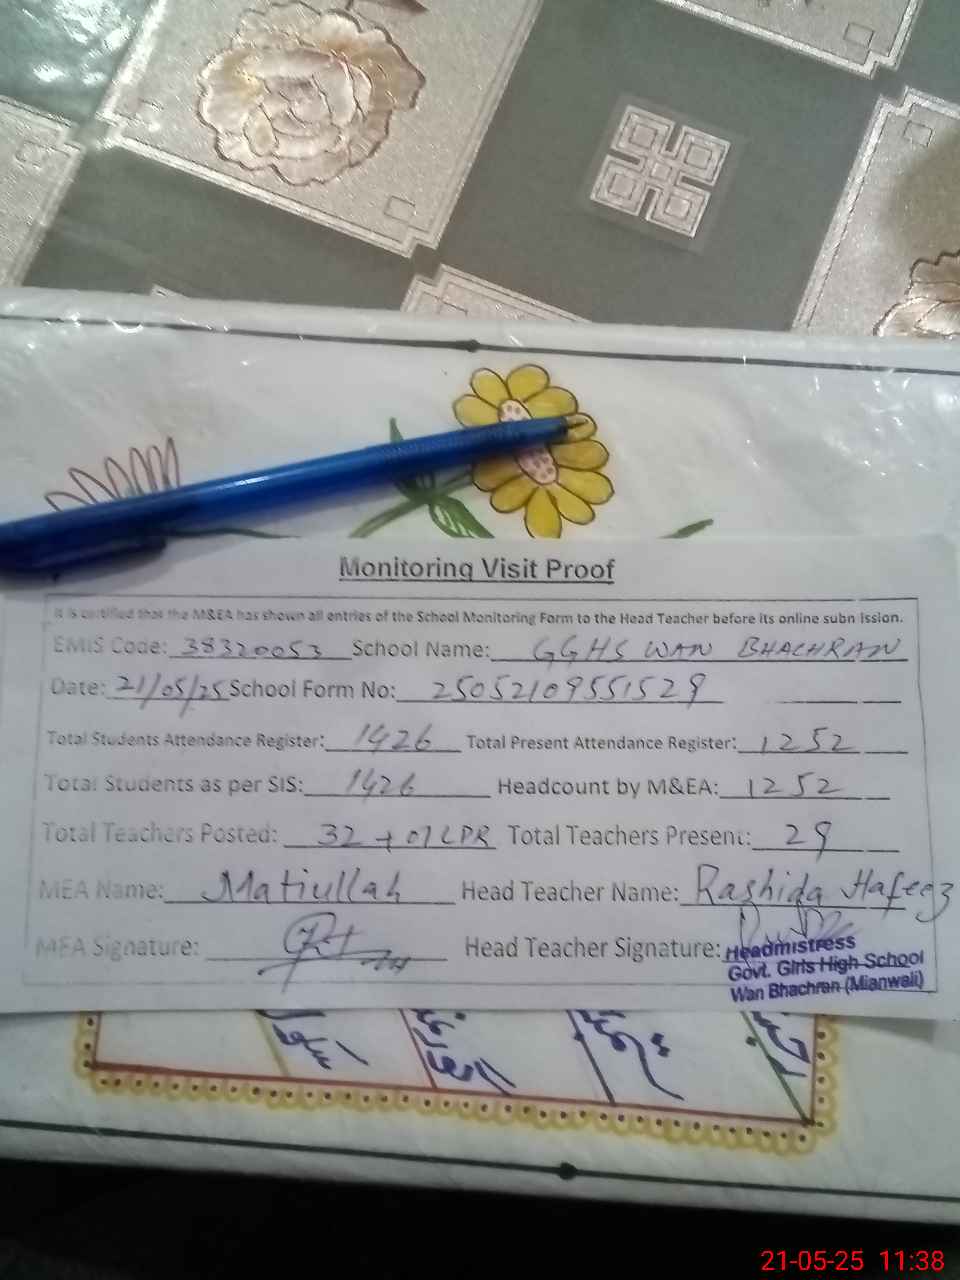 Monitoring Visit Proof
It is certified that the M&EA has shown all entries of the School Monitoring Form to the Head Teacher before its online subn ission.
EMIS Code: 38320053 School Name: GGHS WAN BHACHRAN
Date: 21/05/25 School Form No: 25052109551529
Total Students Attendance Register: 1426 Total Present Attendance Register: 1252
Total Students as per SIS: 1426 Headcount by M&EA: 1252
Total Teachers Posted: 32 + 01 LPR Total Teachers Present: 29
MEA Name: Matiullah Head Teacher Name: Rashida Hafeez
MEA Signature: Head Teacher Signature:
Headmistress
Govt. Girls High School
Wan Bhachran (Mianwali)
21-05-25 11:38